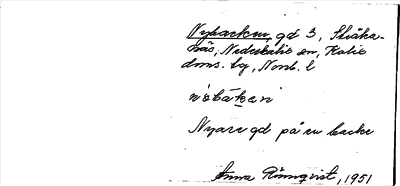 Nybacken, gd 3, Stråka-
näs, Nederkalix sn, Kalix
doms. tg, Norrb. l
Nyare gd på en backe
Anna Rönnqvist, 1951